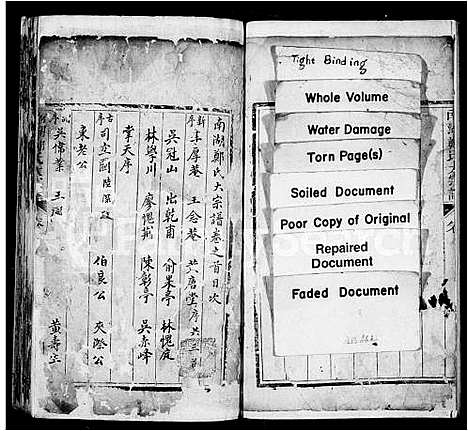 Tight Binding
Whole Volume
Water Damage
Torn Page(s)
Soiled Document
Poor Copy of Original
Repaired
Document
Faded Document
南湖鄭氏大宗譜卷之首目次
新序
李厚菴 王念菴 共唐堂序共三
吳冠山 出乾甫 俞果亭 林愧庭
林學川 廖愧戴 陳彰亭 吳赤峰
掌天序
古序
司空圖 陸保政 伯良公 夾漈公
東老公
吳偉業 王 黃壽生